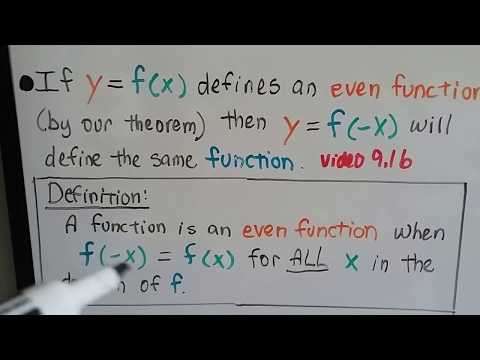 • If y = f(x) defines an even function
(by our theorem) then y = f(-x) will
define the same function. video 9.1b
Definition:
A function is an even function when
f(-x) = f(x) for ALL x in the
of f.